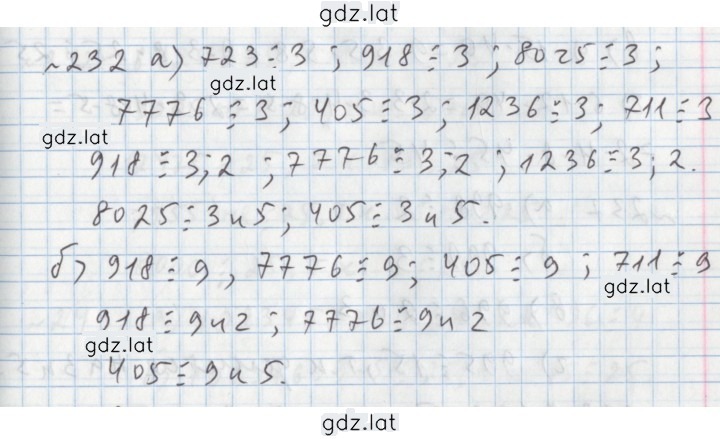 gdz.lat
№232 а) 723⋮3 ; 918⋮3 ; 8025⋮3 ;
gdz.lat
7776⋮3 ; 405⋮3 ; 1236⋮3 ; 711⋮3
gdz.lat
918⋮3; 2 ; 7776⋮3; 2 ; 1236⋮3; 2.
8025⋮3 и 5 ; 405⋮3 и 5.
б) 918⋮9, 7776⋮9 ; 405⋮9 ; 711⋮9
gdz.lat
918⋮9 и 2 ; 7776⋮9 и 2
gdz.lat
405⋮9 и 5.
gdz.lat